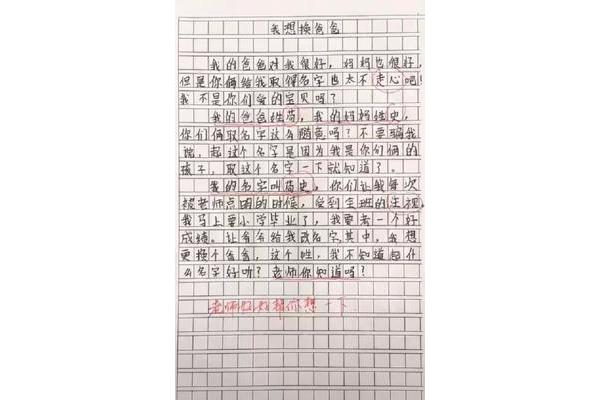 我想换爸爸
我的爸爸对我很好，妈妈也很好，
但是你俩给我取得名字也太不走心吧！
我不是你们爱的宝贝吗？
我的爸爸姓苟，我的妈妈姓史，
你们俩取名字这么随意吗？不要骗我
说，起这个名字是因为我是你们俩的
孩子，取这个名字一下就知道了。
我的名字叫苟史，你们让我每次
被老师点明的时候，受到全班的注视，
我马上要小学毕业了，我要考一个好
成绩。让爸爸给我改名字，其中，我想
更换个爸爸，这个姓，我不知道起什
么名字好听？老师你知道吗？
老师好好替你想一下